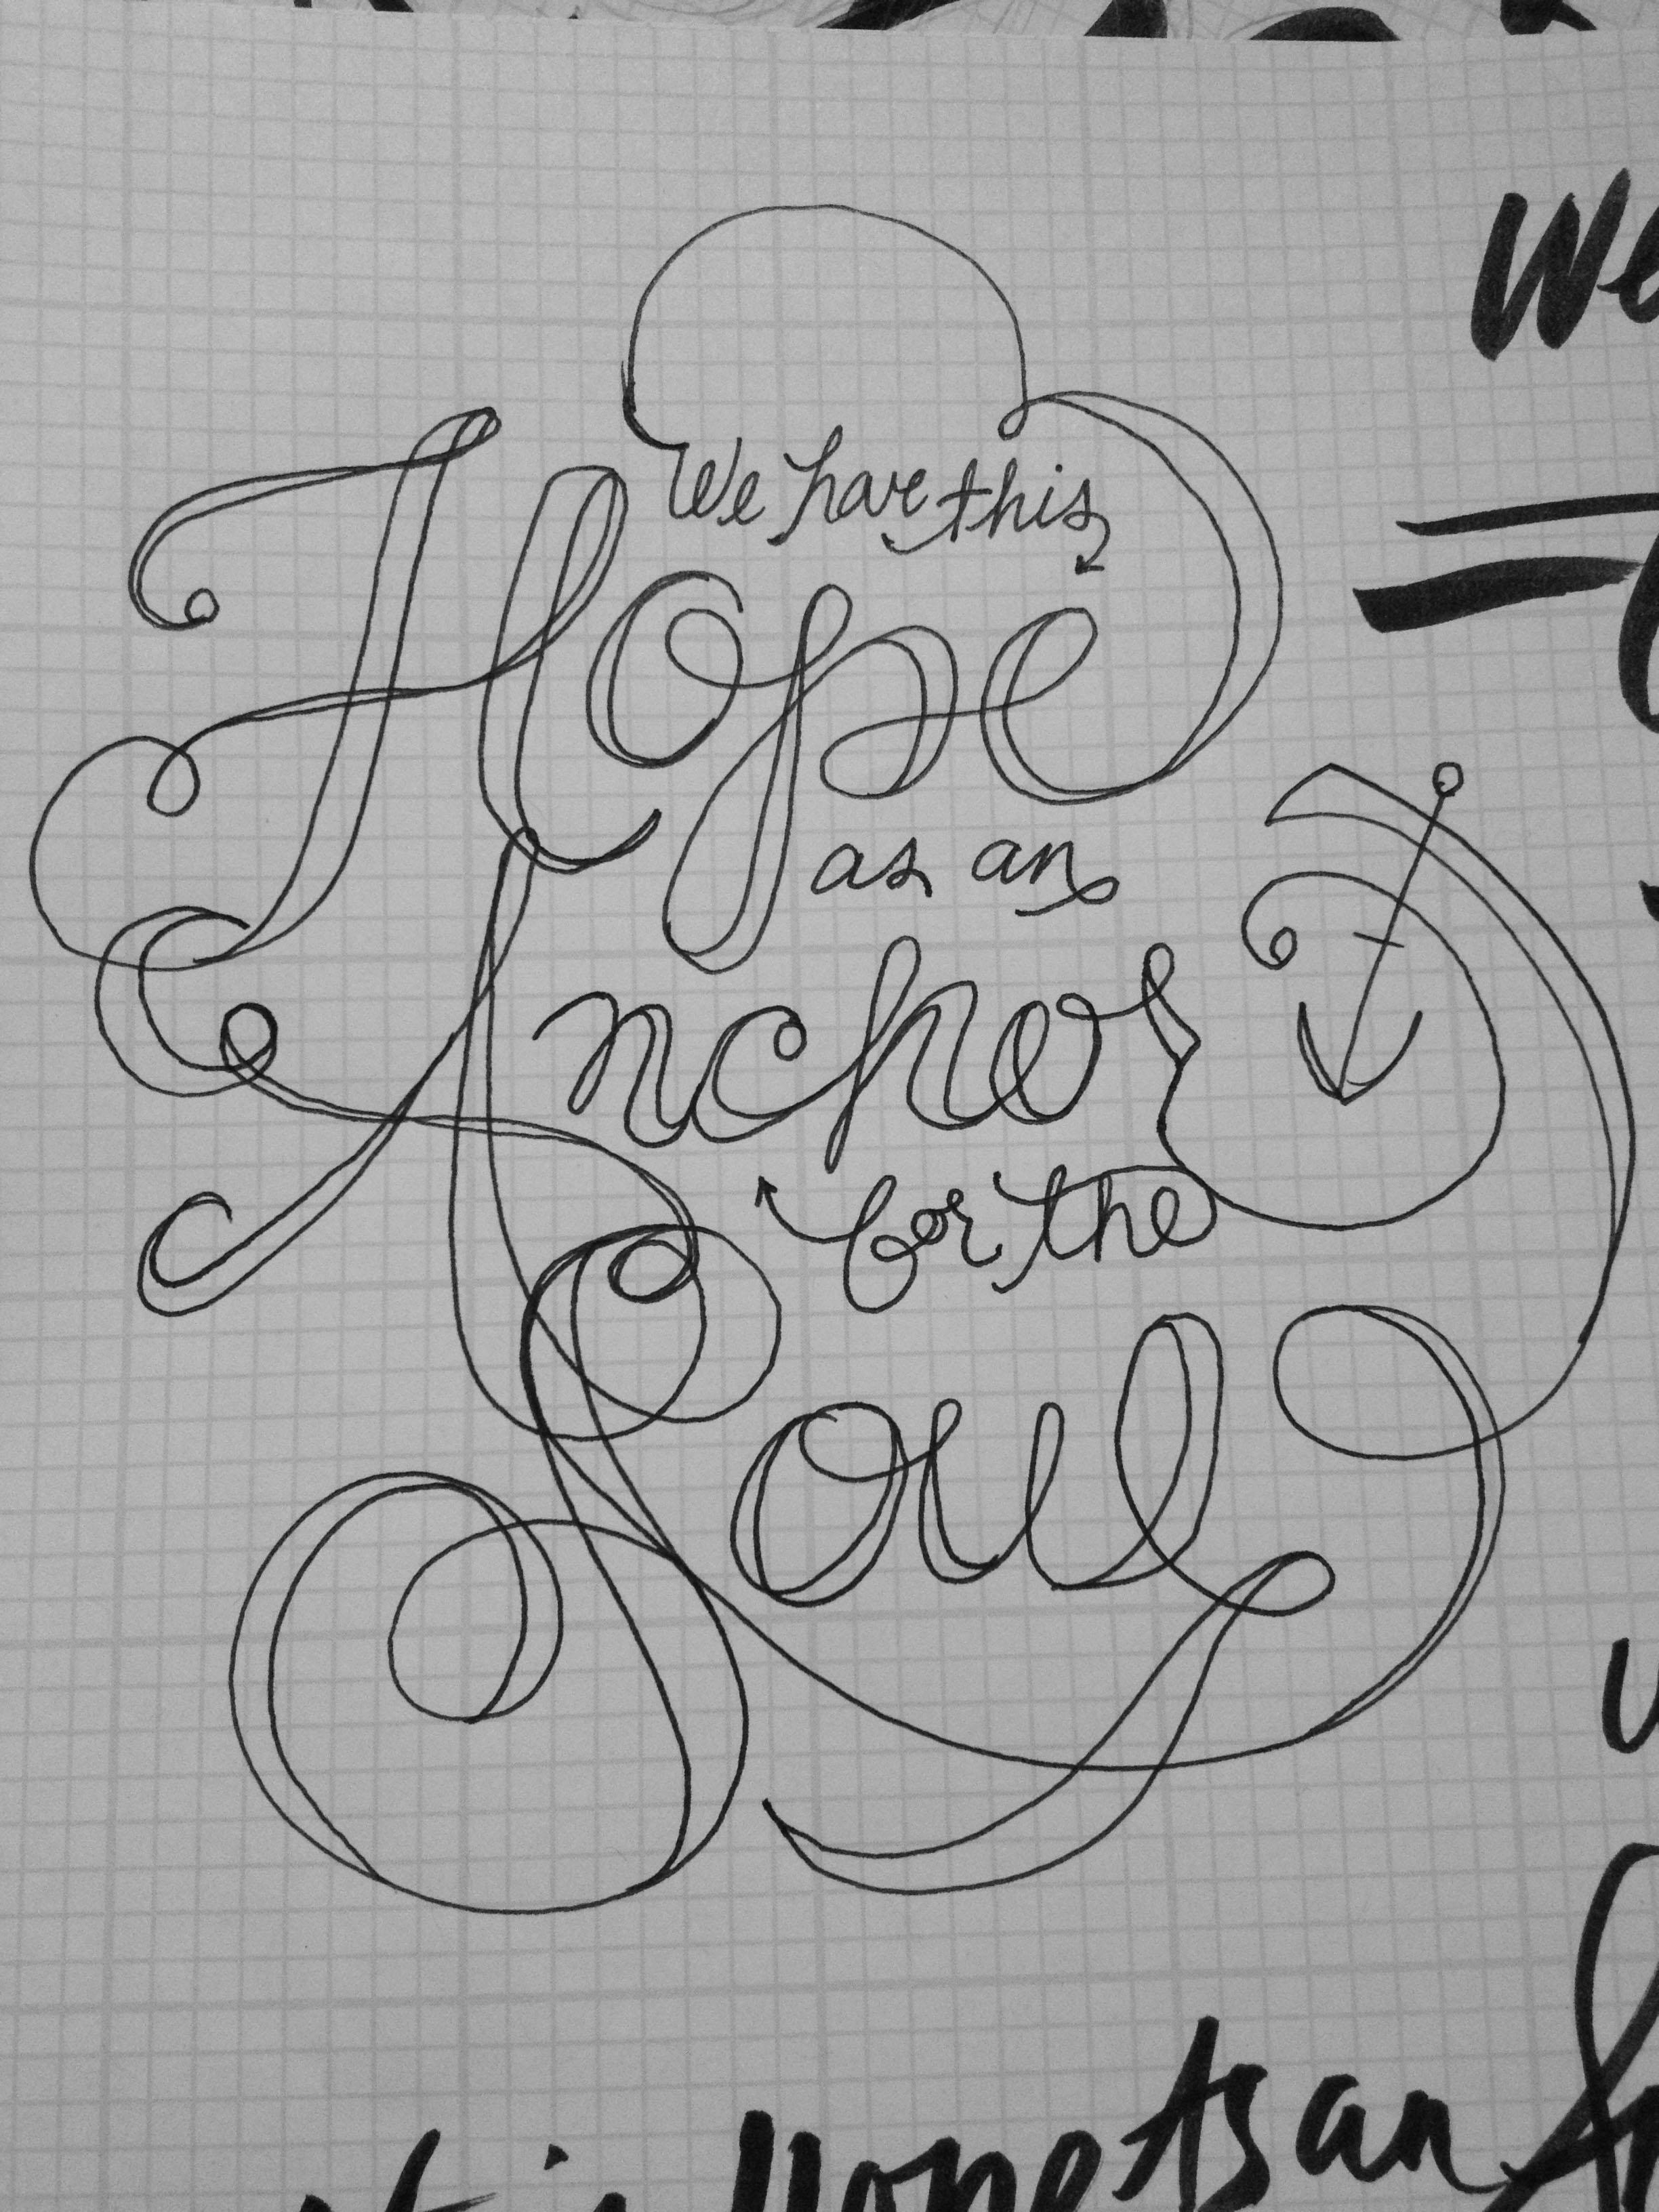 We have this
Hope
as an
Anchor
for the
Soul
We
Hope As an